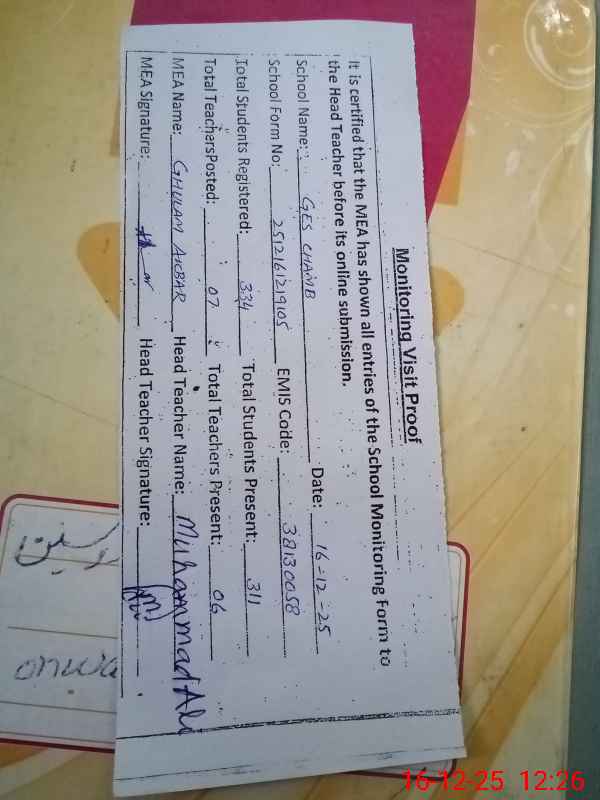 Monitoring Visit Proof
It is certified that the MEA has shown all entries of the School Monitoring Form to
the Head Teacher before its online submission.
School Name: GES CHAMB Date: 16-12-25
School Form No: 2512161219105 EMIS Code: 38130058
Total Students Registered: 334 Total Students Present: 311
Total TeachersPosted: 07 Total Teachers Present: 06
MEA Name: GHULAM AKBAR Head Teacher Name: Muhammad Ali
MEA Signature: Head Teacher Signature:
16-12-25 12:26